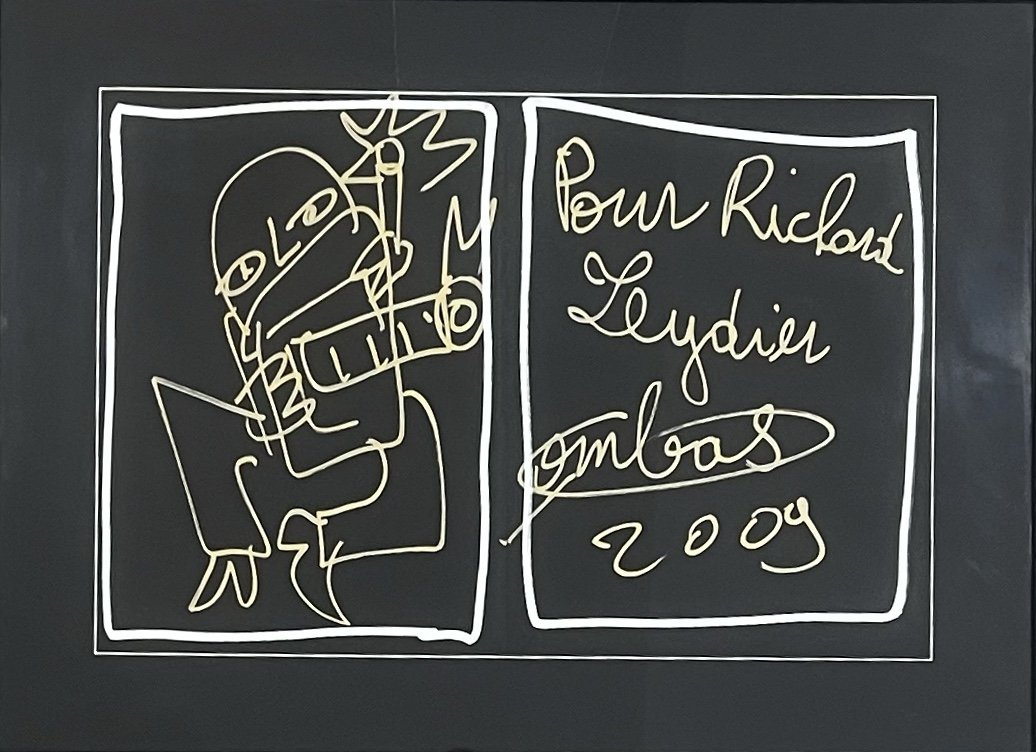 Pour Richard
Leydier
Combas
2009